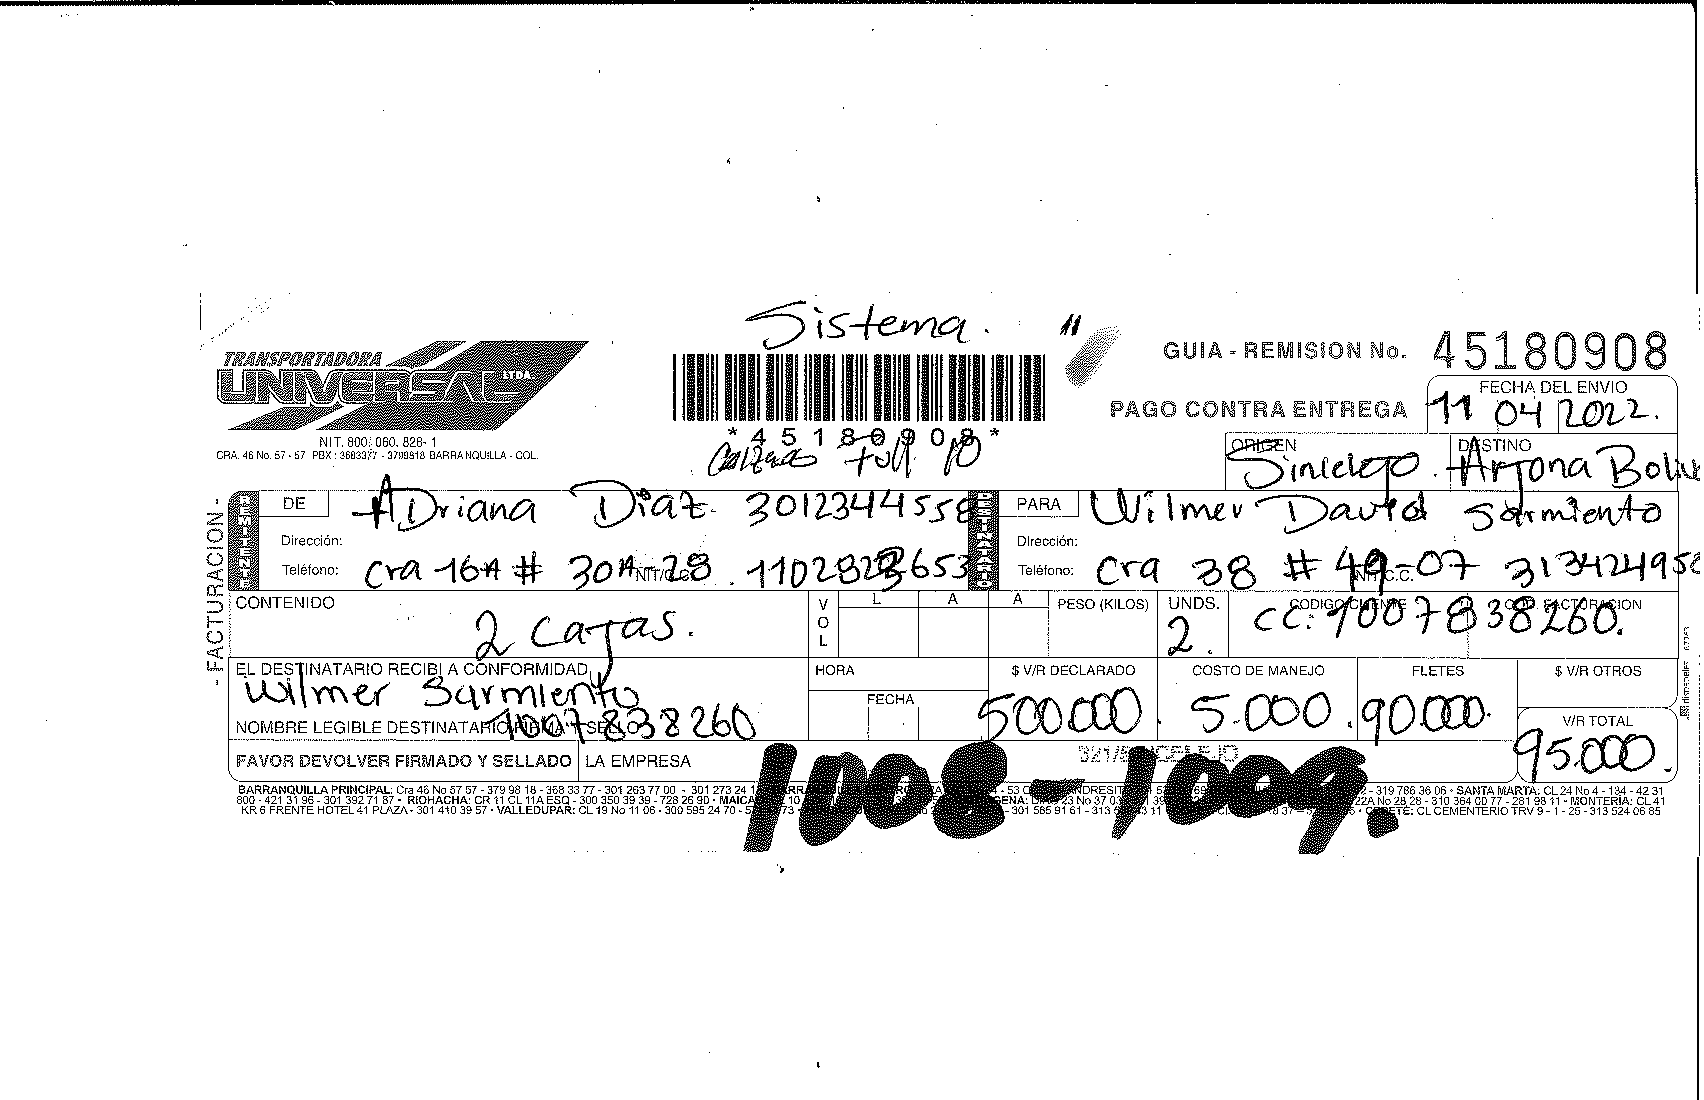 Sistema. 11
TRANSPORTADORA
UNIVERSAL LTDA
GUIA - REMISION No. 45180908
FECHA DEL ENVIO
11 04 2022.
PAGO CONTRA ENTREGA
*45180908*
NIT. 800. 060. 828- 1
CRA. 46 No. 57 - 57 PBX : 3683377 - 3799818 BARRANQUILLA - COL.
ORIGEN DESTINO
Sincelejo. Arjona Boliv
- FACTURACION -
REMITENTE
DE Adriana Diaz. 3012344558
Dirección:
Teléfono: cra 16A # 30A-28 NIT/C.C. 1102828653
DESTINATARIO
PARA Wilmer David Sarmiento
Dirección:
Teléfono: cra 38 # 49-07 NIT/C.C. 313424950
CONTENIDO
2 cajas.
VOL L A A PESO (KILOS) UNDS.
2.
CODIGO CLIENTE COD. FACTURACION
CC: 1007838260.
EL DESTINATARIO RECIBI A CONFORMIDAD
Wilmer Sarmiento
1007838260
NOMBRE LEGIBLE DESTINATARIO FIRMA Y SELLO
HORA
FECHA
$ V/R DECLARADO COSTO DE MANEJO FLETES $ V/R OTROS
500000. 5.000. 90.000.
V/R TOTAL
95.000.
FAVOR DEVOLVER FIRMADO Y SELLADO LA EMPRESA
321/SINCELEJO
1008-1009.
BARRANQUILLA PRINCIPAL: Cra 46 No 57 57 - 379 98 18 - 368 33 77 - 301 263 77 00 - 301 273 24 - 319 786 36 06 - SANTA MARTA: CL 24 No 4 - 134 - 42 31
800 - 421 31 96 - 301 392 71 87 - RIOHACHA: CR 11 CL 11A ESQ - 300 350 39 39 - 728 26 90 - MAICA 22A No 28 28 - 310 364 00 77 - 281 98 11 - MONTERIA: CL 41
KR 6 FRENTE HOTEL 41 PLAZA - 301 410 39 57 - VALLEDUPAR: CL 19 No 11 06 - 300 595 24 70 - 301 585 91 61 - 313 CL CEMENTERIO TRV 9 - 1 - 25 - 313 524 06 85